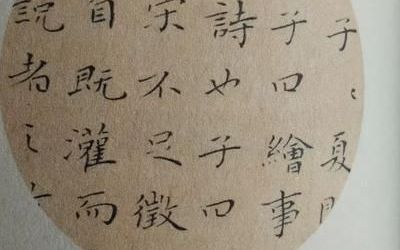 子〻夏
子曰繪事
詩也子曰
宋不足徵
自既灌而
說者之